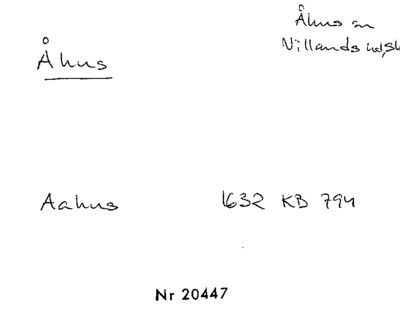 Åhus
Åhus sn
Villands hd, Sk
Aahus 1632 KB 794
Nr 20447